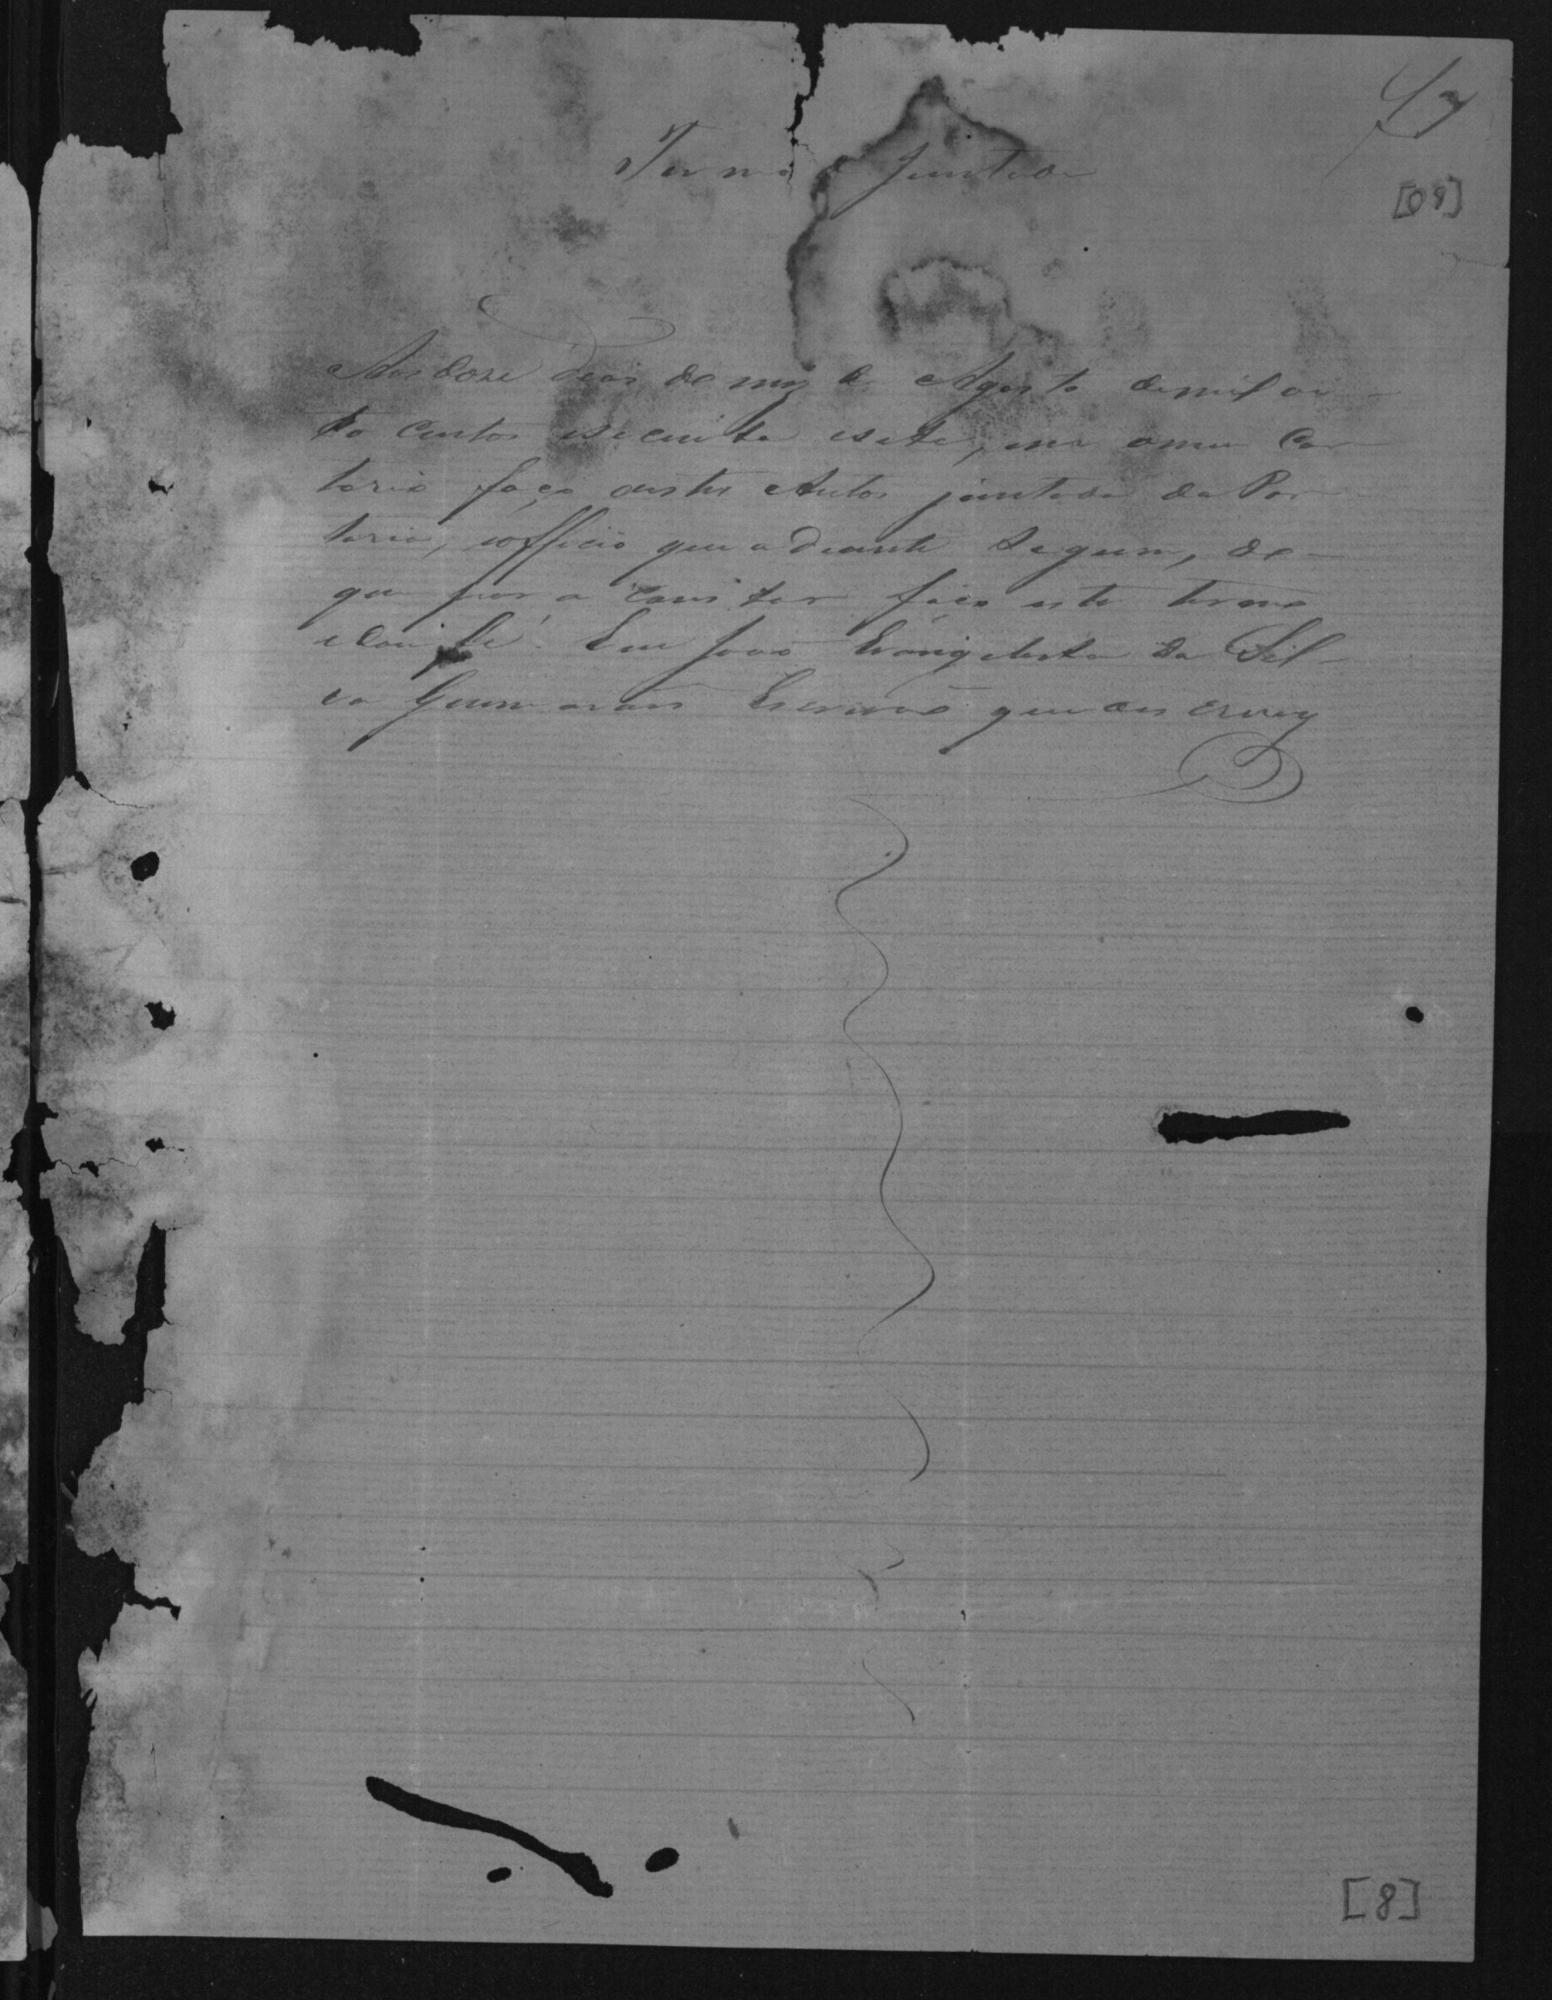 Termo Juntada
[09]
Aos doze dias do mez de Agosto de mil oi-
to centos secenta e sete, em o meu Car
torio faço nestes Autos juntada da Por
taria, e officio que a diante seguem, do-
que para constar faço este termo
e dou fé. Eu João Evangelista da Sil-
va Guimarães Escrivão que escrevy
[8]